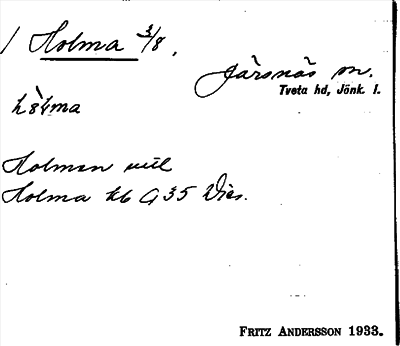 / Holma 3/8.
Järsnäs sn.
Tveta hd, Jönk. l.
Holmen
Holma kb G 35 Dies.
FRITZ ANDERSSON 1933.